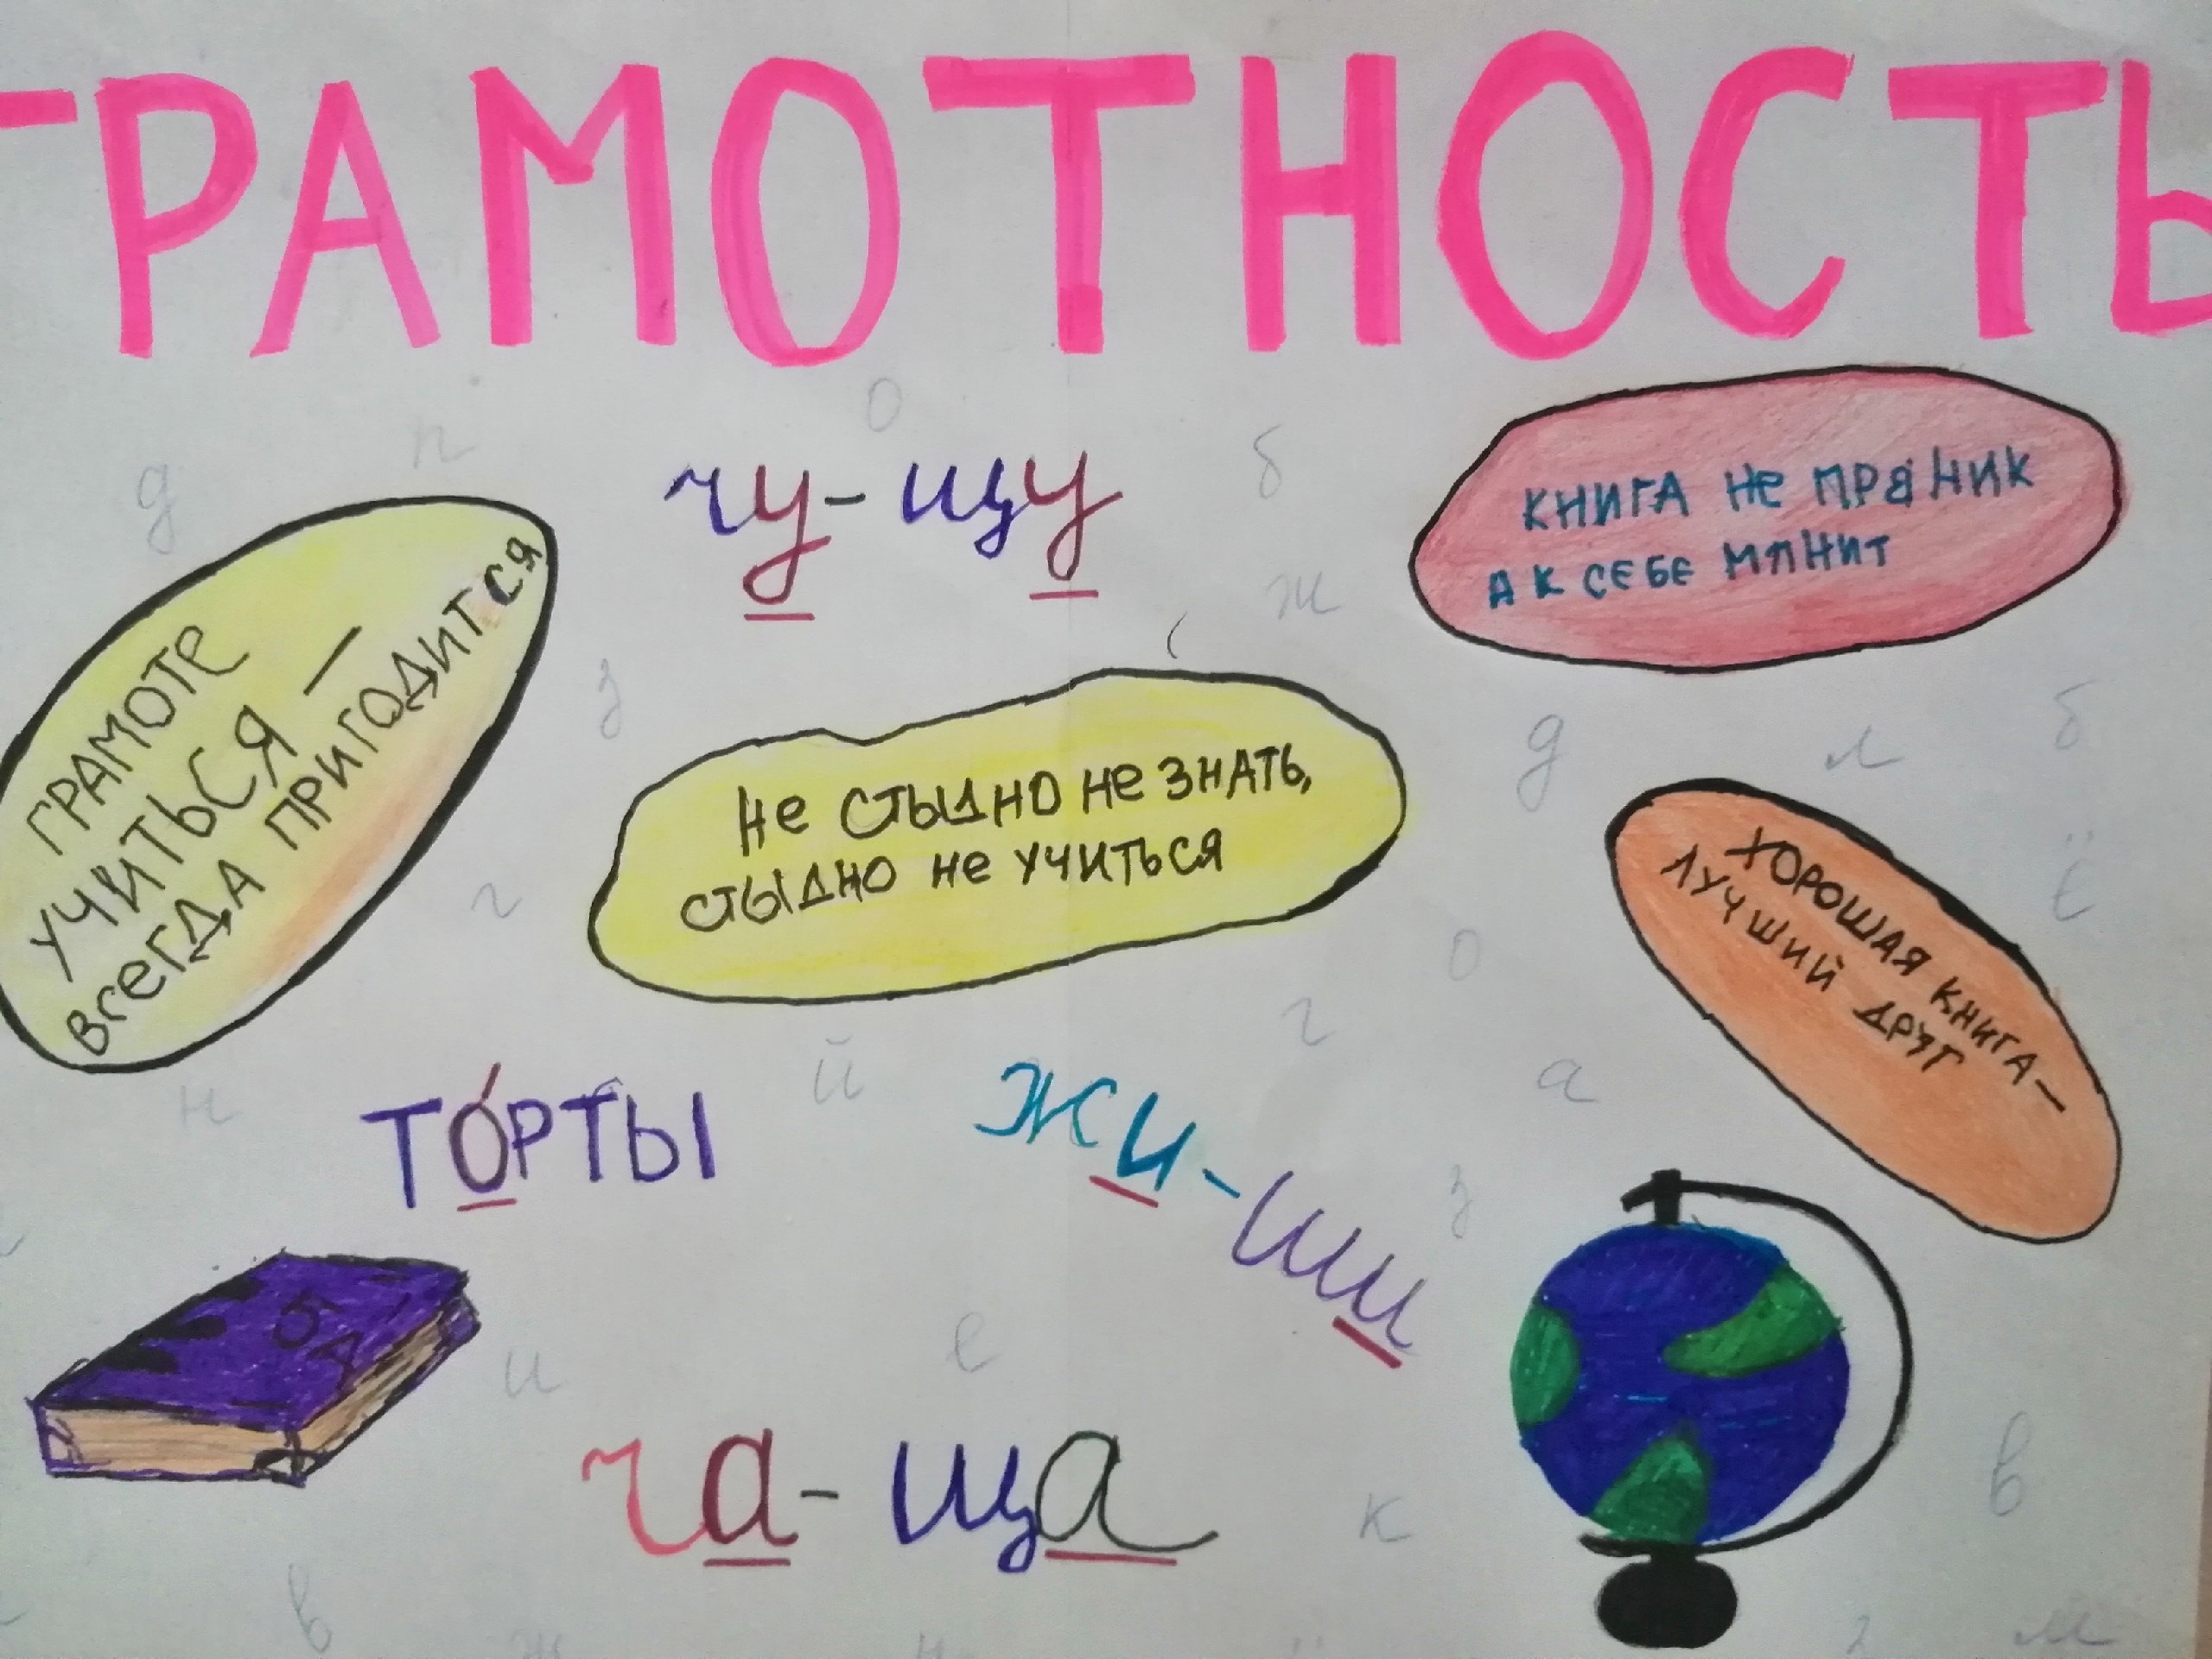 ГРАМОТНОСТЬ
чу-щу
КНИГА Не ПРЯНИК
А К СЕБЕ МАНИТ
ГРАМОТЕ
УЧИТЬСЯ —
ВСЕГДА ПРИГОДИТСЯ
Не СТЫДНО Не ЗНАТЬ,
СТЫДНО Не УЧИТЬСЯ
ХОРОШАЯ КНИГА—
ЛУЧШИЙ ДРУГ
ТО́РТЫ
ЖИ-ШИ
ча-ща
д
п
о
б
ж
з
д
л
б
г
о
ё
н
й
г
а
з
и
е
к
в
в